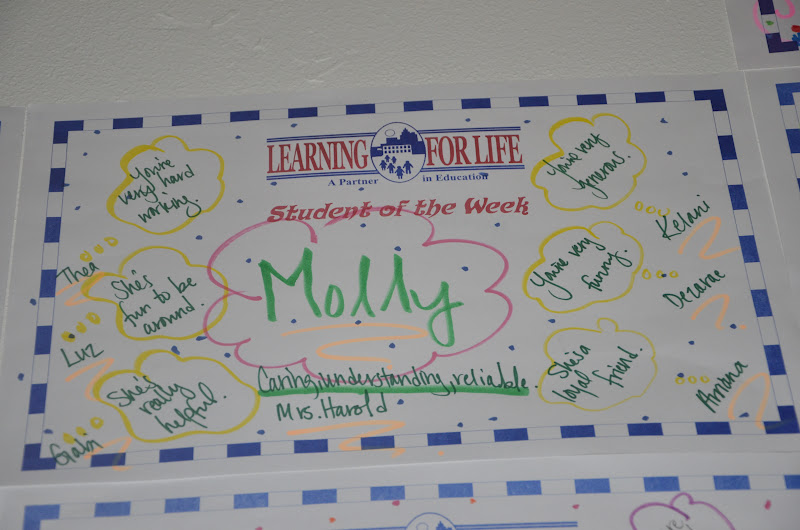 LEARNING FOR LIFE
A Partner in Education
Student of the Week
Molly
Caring, understanding, reliable.
Mrs. Harold
You're
very hard
working.
Thea
She's
fun to be
around.
Luz
She's
really
helpful.
Gabi
You're very
generous.
Kelani
You're very
funny.
Dezarae
She's a
loyal
friend.
Amana